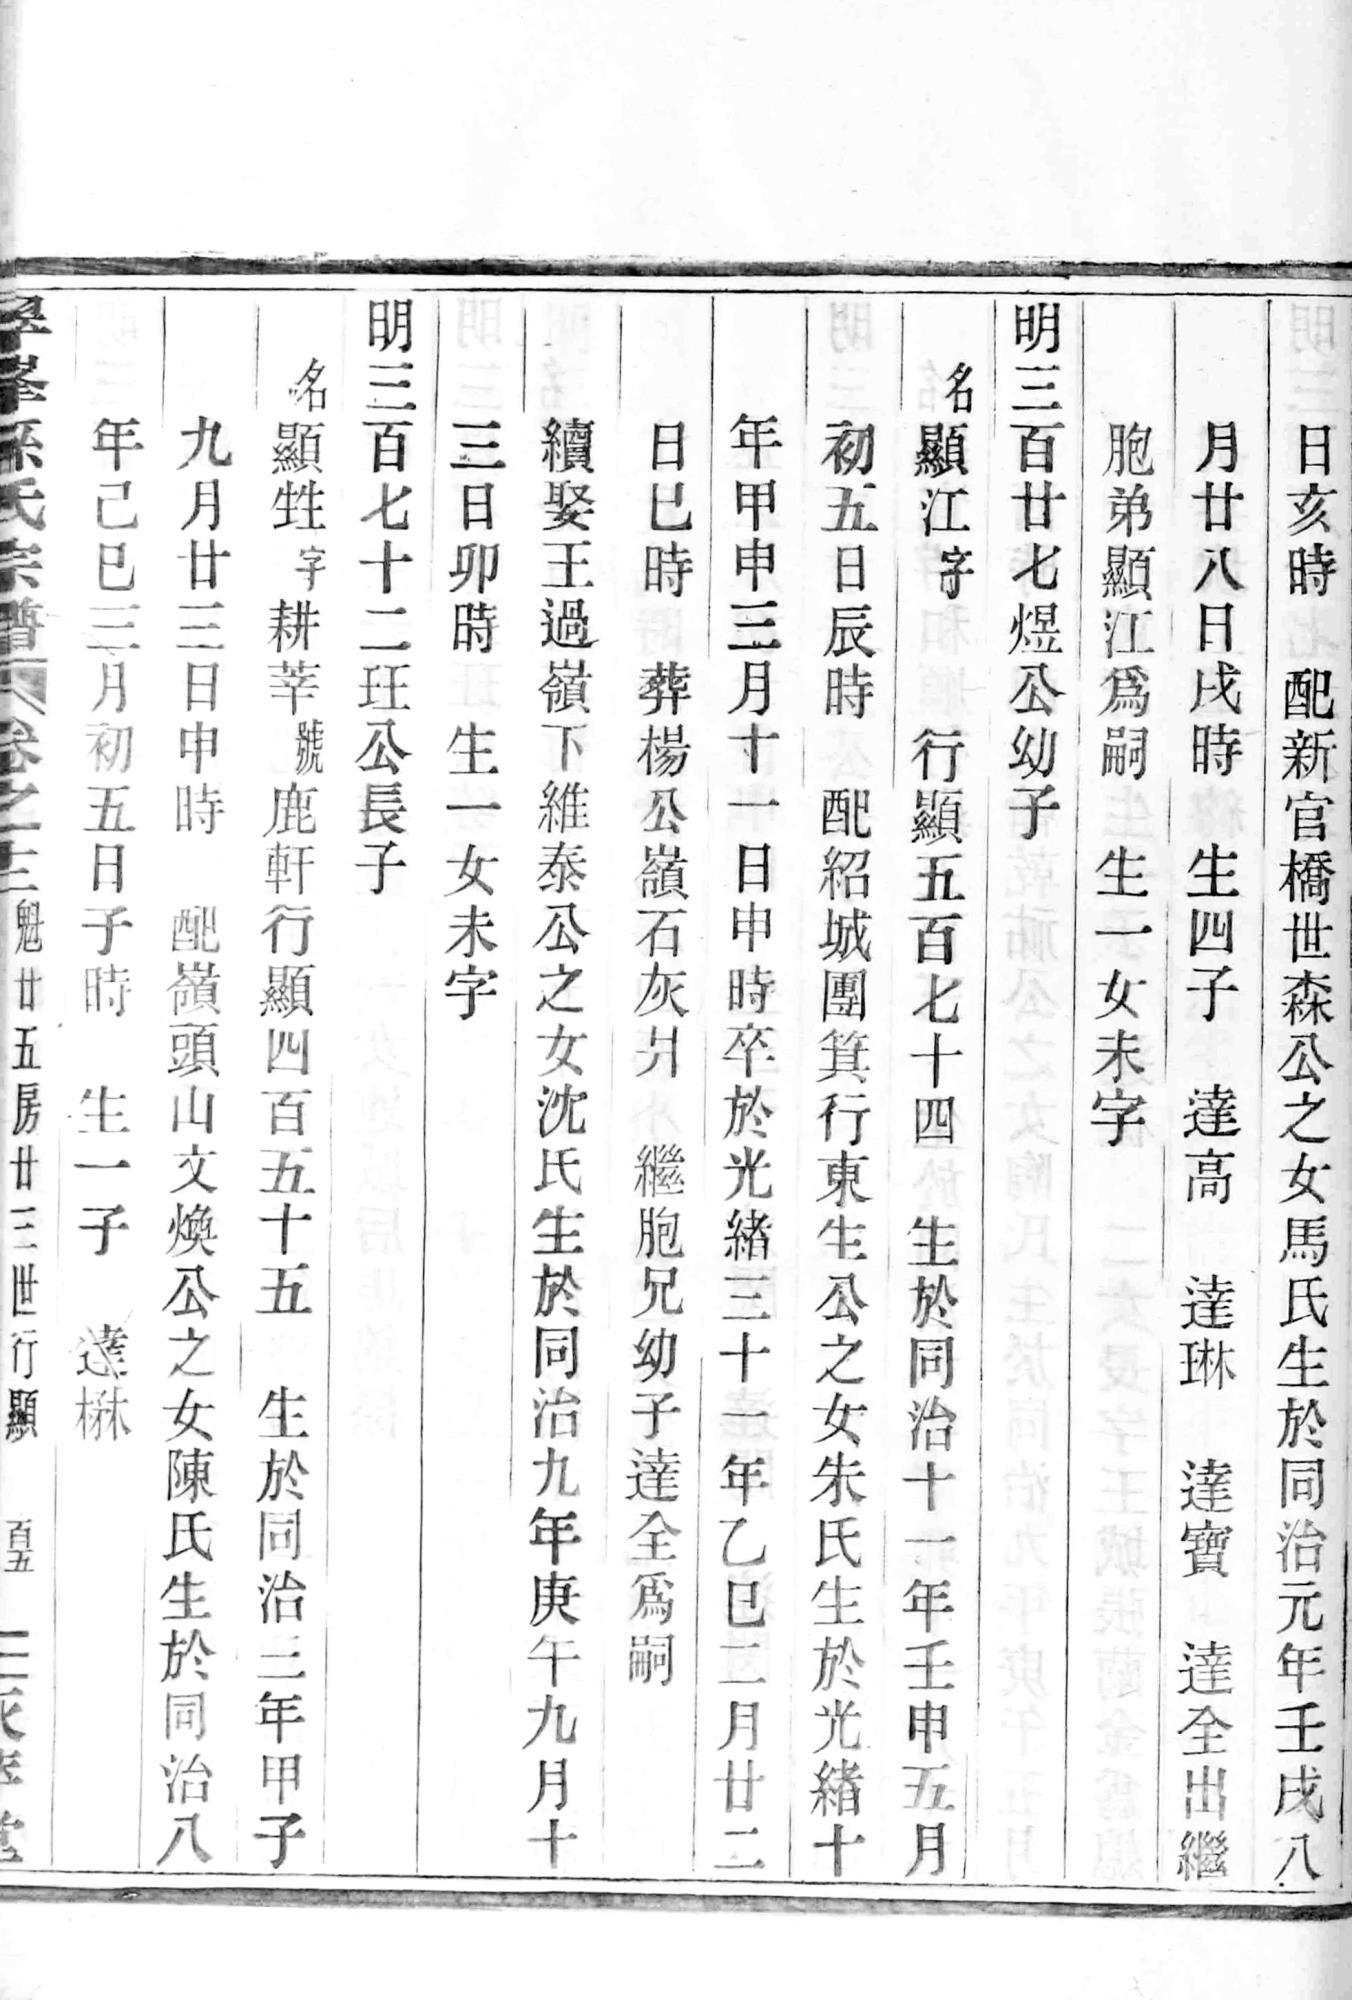 日亥時　配新官橋世森公之女馬氏生於同治元年壬戌八
月廿八日戌時　生四子　達高　達琳　達寶　達全出繼
胞弟顯江爲嗣　生一女未字
明三百廿七煜公幼子
名顯江字　行顯五百七十四　生於同治十一年壬申五月
初五日辰時　配紹城團箕行東生公之女朱氏生於光緒十
年甲申三月十一日申時卒於光緒三十一年乙巳二月廿二
日巳時　葬楊公嶺石灰爿　繼胞兄幼子達全爲嗣
續娶王過嶺下維泰公之女沈氏生於同治九年庚午九月十
三日卯時　生一女未字
明三百七十二玨公長子
名顯甡字耕莘號鹿軒行顯四百五十五　生於同治三年甲子
九月廿三日申時　配嶺頭山文煥公之女陳氏生於同治八
年己巳三月初五日子時　生一子　達楙
孫氏宗譜　卷之十三　魁廿五房廿三世行顯　百五